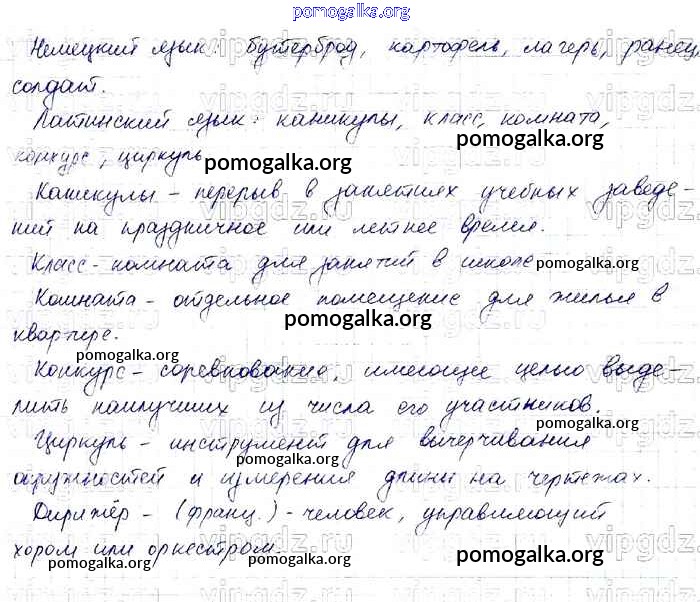 pomogalka.org
Немецкий язык: бутерброд, картофель, лагерь, ранец,
солдат.
Латинский язык: каникулы, класс, комната,
pomogalka.org
конкурс, циркуль
pomogalka.org
Каникулы - перерыв в занятиях учебных заведе-
ний на праздничное или летнее время.
Класс - комната для занятий в школе pomogalka.org
Комната - отдельное помещение для жилья в
pomogalka.org
квартире.
pomogalka.org
Конкурс - соревнование, имеющее целью выде-
лить наилучших из числа его участников.
pomogalka.org
Циркуль - инструмент для вычерчивания
pomogalka.org
окружностей и измерения длины на чертежах.
Дирижёр - (франц.) - человек, управляющий
хором или оркестром.
pomogalka.org
pomogalka.org